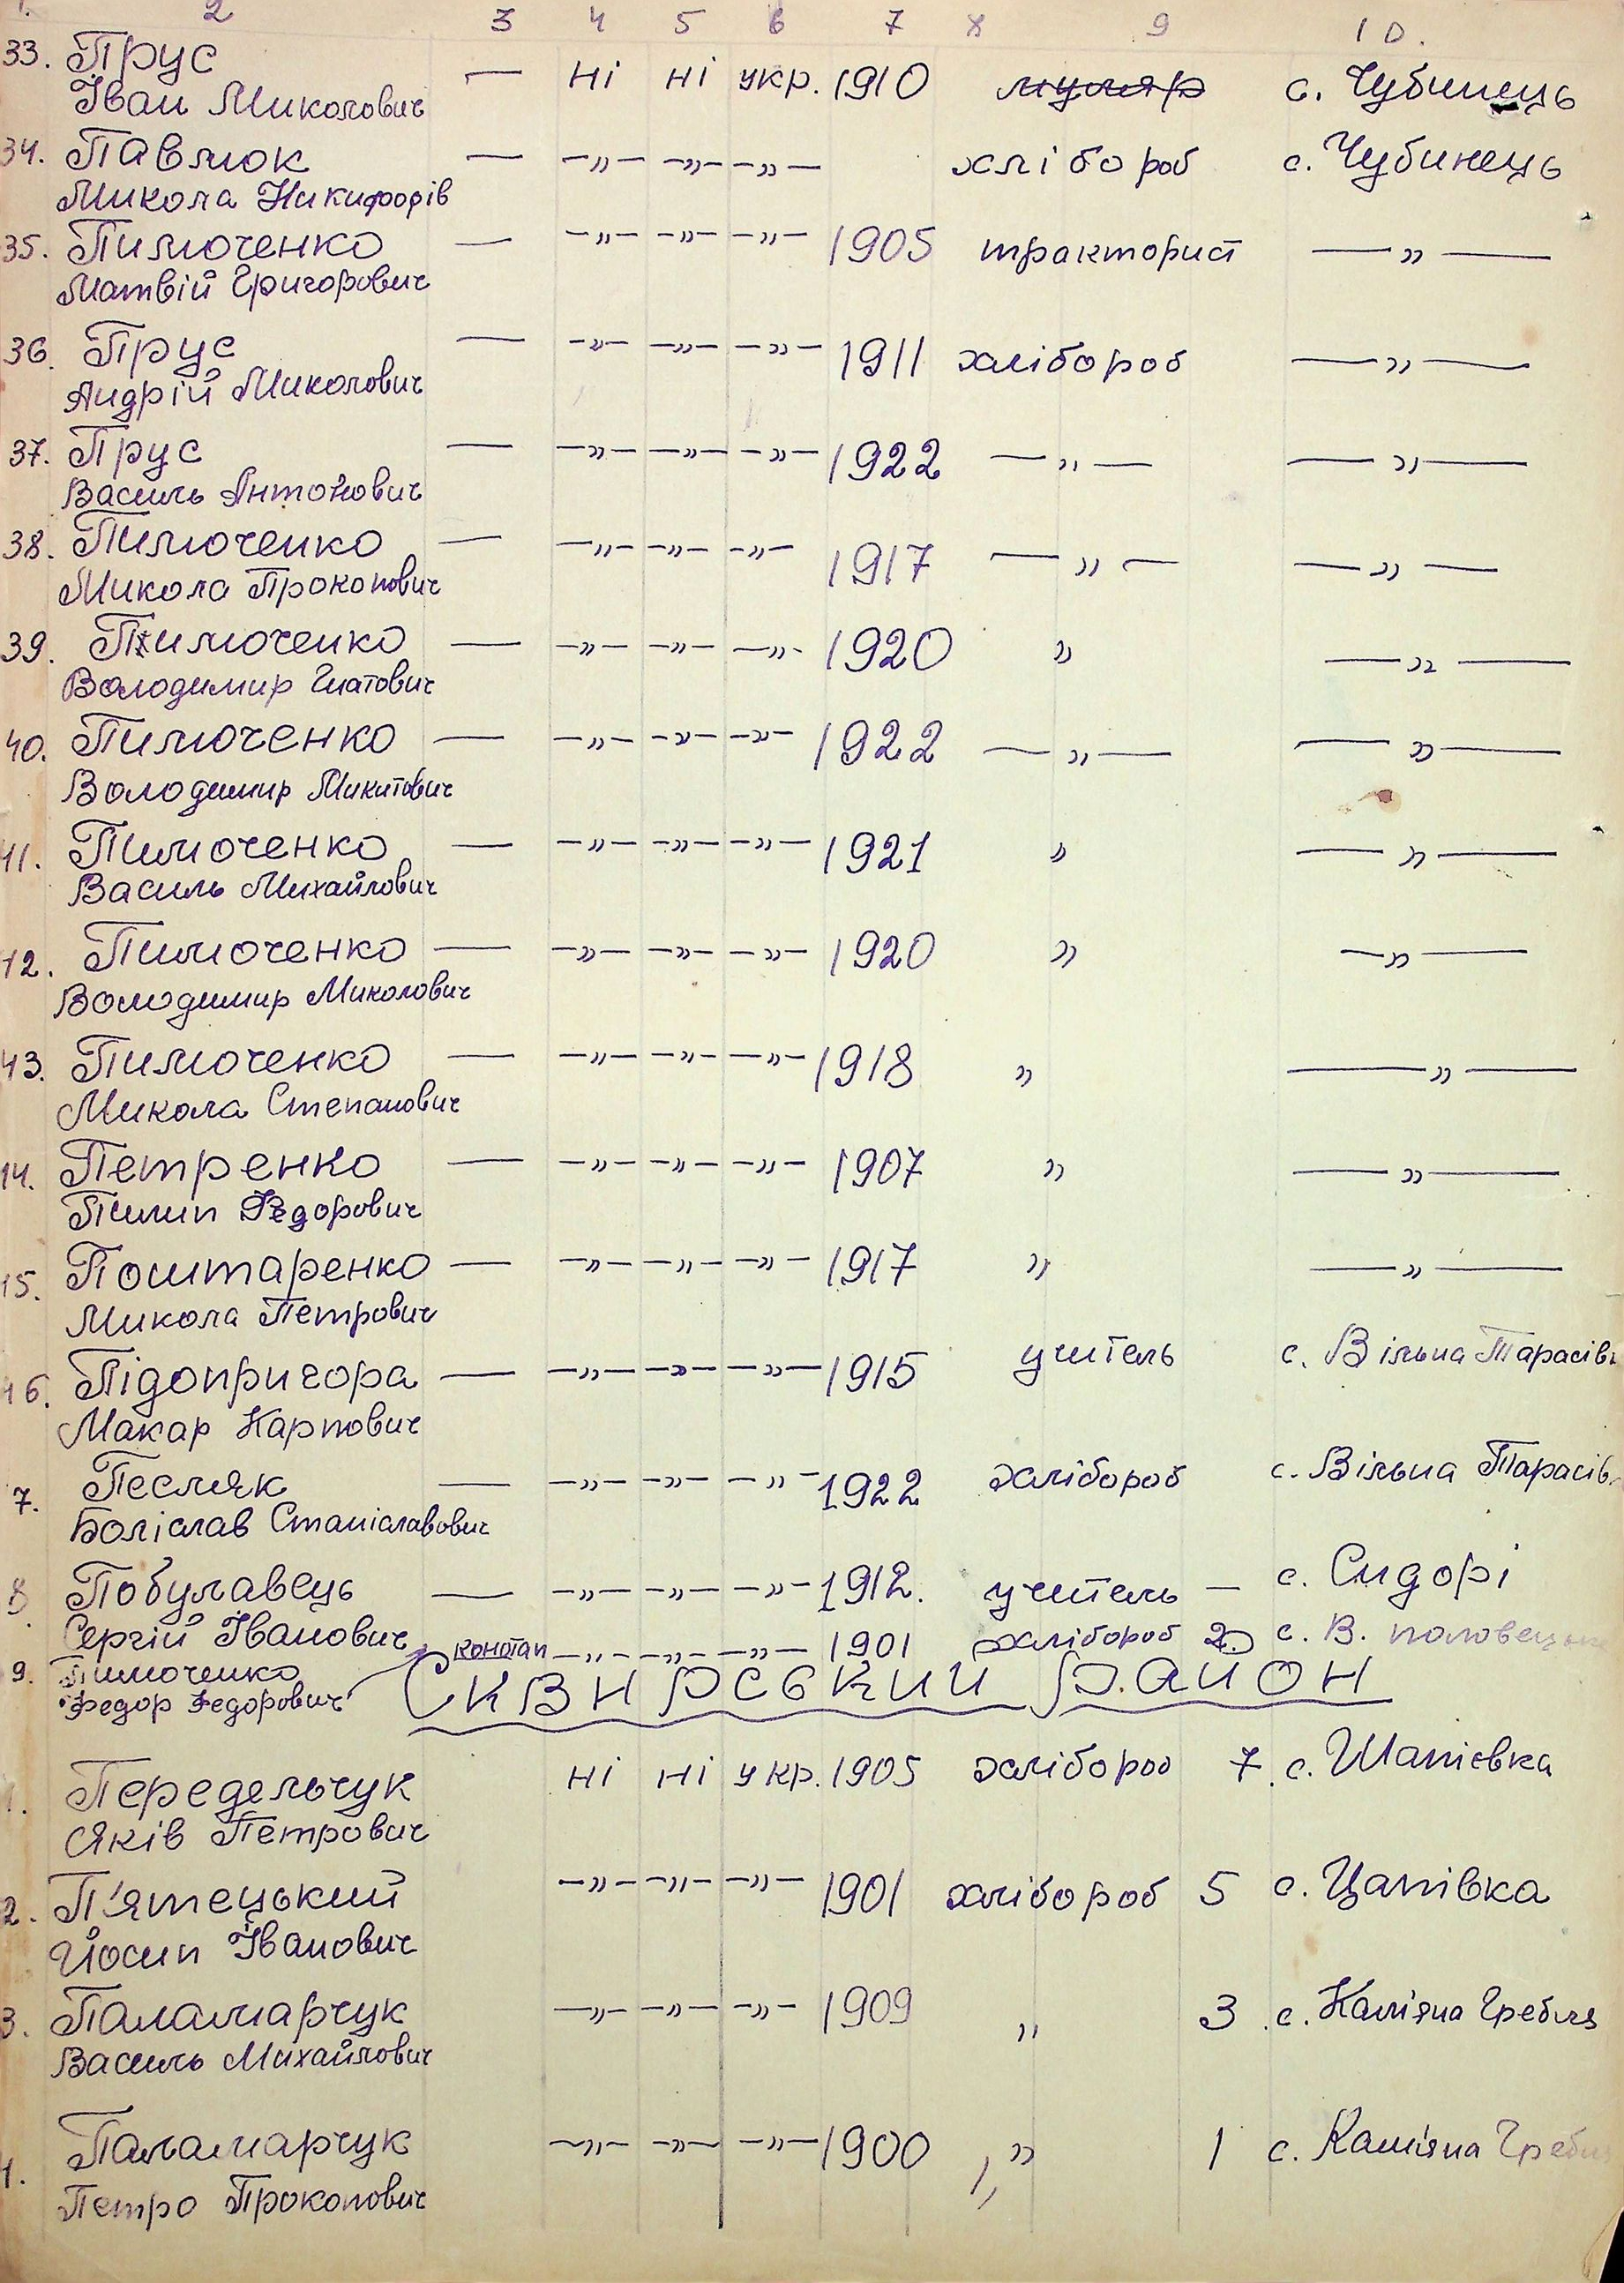 1. 2 3 4 5 6 7 8 9 10.
33. Прус — ні ні укр. 1910 муляр с. Чубинець
Іван Миколович
34. Павлюк — —„— —„— —„— хлібороб с. Чубинець
Микола Никифорів
35. Пилюченко — —„— —„— —„— 1905 тракторист —„—
Матвій Григорович
36. Прус — —„— —„— —„— 1911 хлібороб —„—
Андрій Миколович
37. Прус — —„— —„— —„— 1922 —„— —„—
Василь Антонович
38. Пилюченко — —„— —„— —„— 1917 —„— —„—
Микола Прокопович
39. Пилюченко — —„— —„— —„— 1920 „ —„—
Володимир Гнатович
40. Пилюченко — —„— —„— —„— 1922 —„— —„—
Володимир Микитович
41. Пилюченко — —„— —„— —„— 1921 „ —„—
Василь Михайлович
42. Пилюченко — —„— —„— —„— 1920 „ —„—
Володимир Миколович
43. Пилюченко — —„— —„— —„— 1918 „ —„—
Микола Степанович
44. Петренко — —„— —„— —„— 1907 „ —„—
Пилип Федорович
45. Поштаренко — —„— —„— —„— 1917 „ —„—
Микола Петрович
46. Підопригора — —„— —„— —„— 1915 учитель с. Вільна Тарасів
Макар Карпович
7. Песляк — —„— —„— —„— 1922 хлібороб с. Вільна Тарасів
Боліслав Станіславович
8. Побулавець — —„— —„— —„— 1912. учитель — с. Сидорі
Сергій Іванович
9. Пилюченко конотоп —„— —„— —„— 1901 хлібороб 2 с. В. половецьке
Федор Федорович
Сквирський район
1. Передельчук ні ні укр. 1905 хлібороб 7 с. Шапіевка
Яків Петрович
2. П'ятецький —„— —„— —„— 1901 хлібороб 5 с. Цапівка
Йосип Іванович
3. Паламарчук —„— —„— —„— 1909 „ 3 с. Кам'яна Гребля
Василь Михайлович
4. Паламарчук —„— —„— —„— 1900 „ 1 с. Кам'яна Гребля
Петро Прокопович